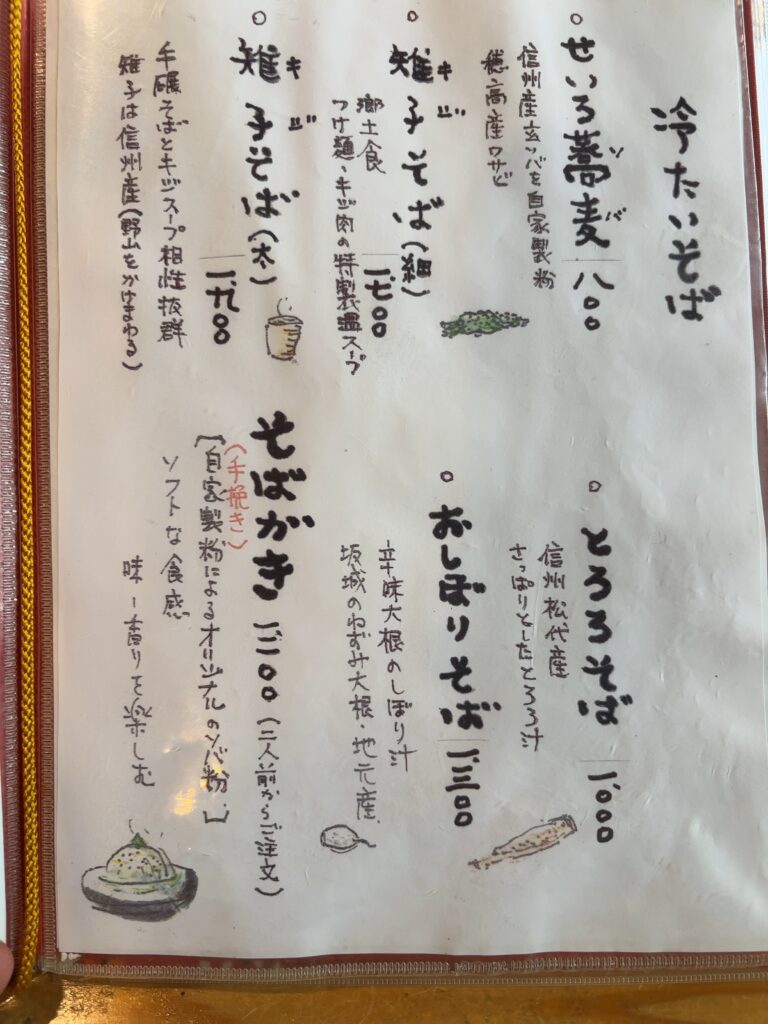 冷たいそば
せいろ蕎麦 八〇〇
ソバ
信州産玄ソバを自家製粉
穂高産ワサビ
雉子そば(細) 一、七〇〇
キジ
郷土食
つけ麺・キジ肉の特製温スープ
雉子そば(太) 一、九〇〇
キジ
手碾そばとキジスープ相性抜群
雉子は信州産(野山をかけまわる)
とろろそば 一、〇〇〇
信州松代産
さっぱりとしたとろろ汁
おしぼりそば
辛味大根のしぼり汁
坂城のねずみ大根・地元産
そばがき (二人前からご注文)
(手挽き)
[自家製粉によるオリジナルのソバ粉。]
ソフトな食感
味ー香りを楽しむ